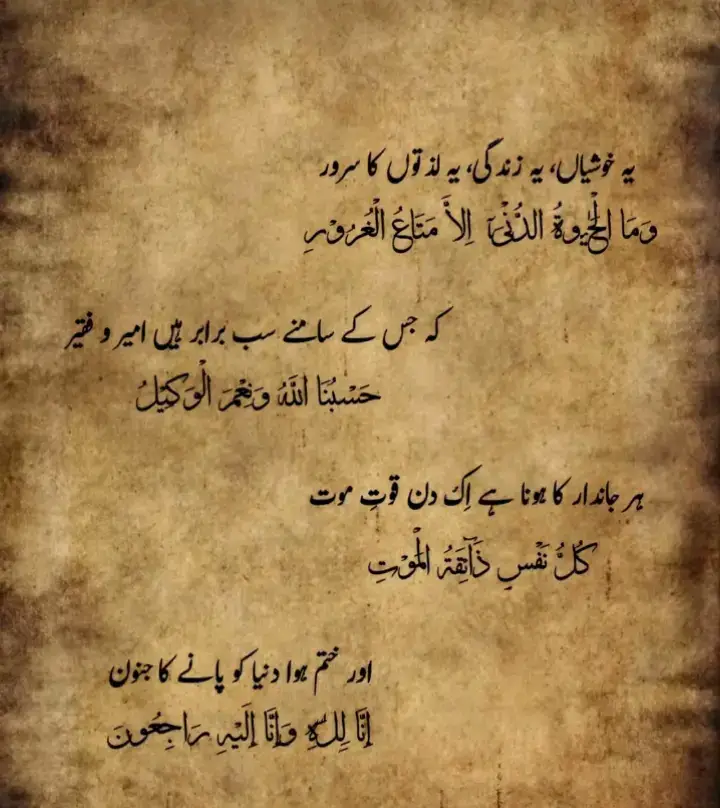 یہ خوشیاں، یہ زندگی، یہ لذتوں کا سرور
وَمَا الْحَيٰوةُ الدُّنْيَآ اِلاَّ مَتَاعُ الْغُرُوْرِ
کہ جس کے سامنے سب برابر ہیں امیر و فقیر
حَسْبُنَا اللّٰهُ وَنِعْمَ الْوَكِيْلُ
ہر جاندار کا ہونا ہے اِک دن قوتِ موت
كُلُّ نَفْسٍ ذَآئِقَةُ الْمَوْتِ
اور ختم ہوا دنیا کو پانے کا جنون
إِنَّا لِلّٰهِ وَإِنَّا إِلَيْهِ رَاجِعُونَ